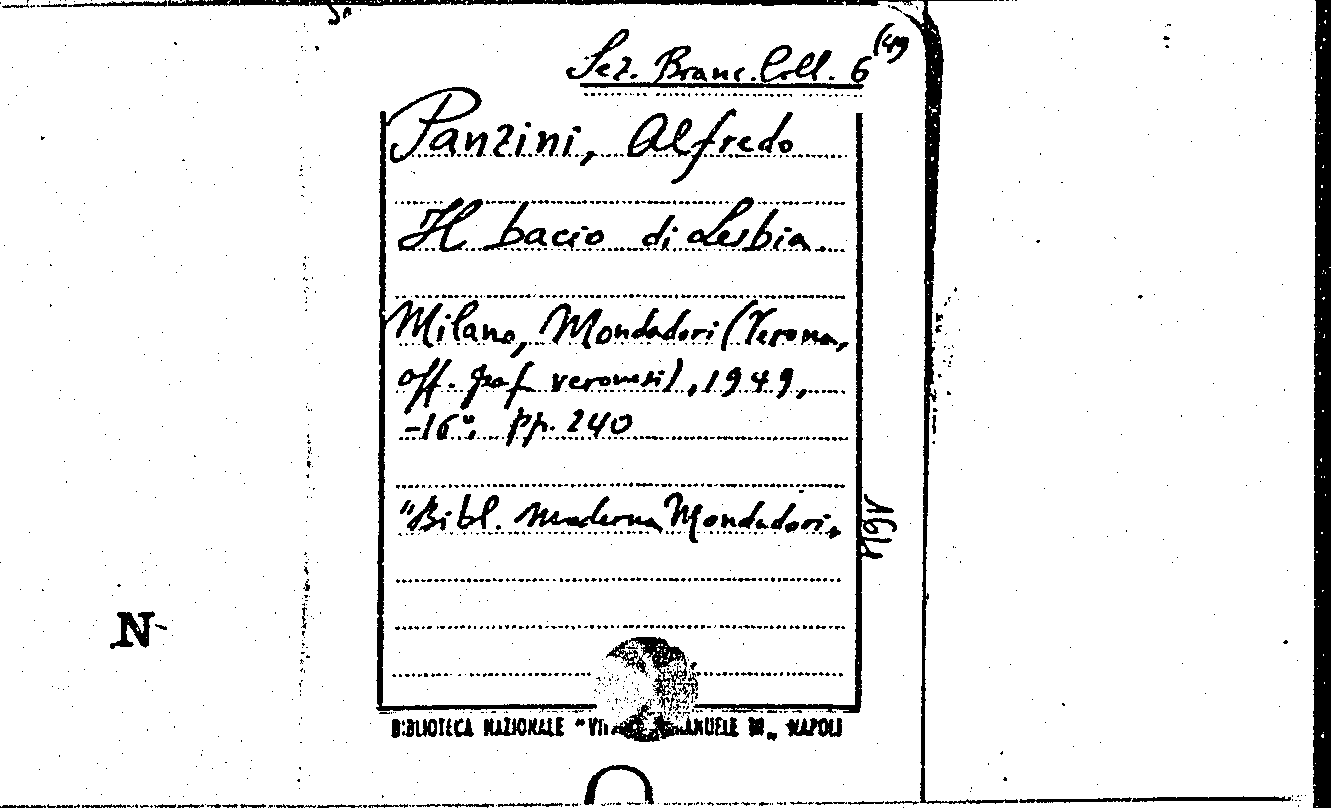 Sez. Branc. Coll. 6 (49
Panzini, Alfredo
Il bacio di Lesbia
Milano, Mondadori (Verona,
off. graf. veronesi), 1949,
-16°, pp. 240
"Bibl. moderna Mondadori„
N
BIBLIOTECA NAZIONALE "VITT EMANUELE III„ NAPOLI